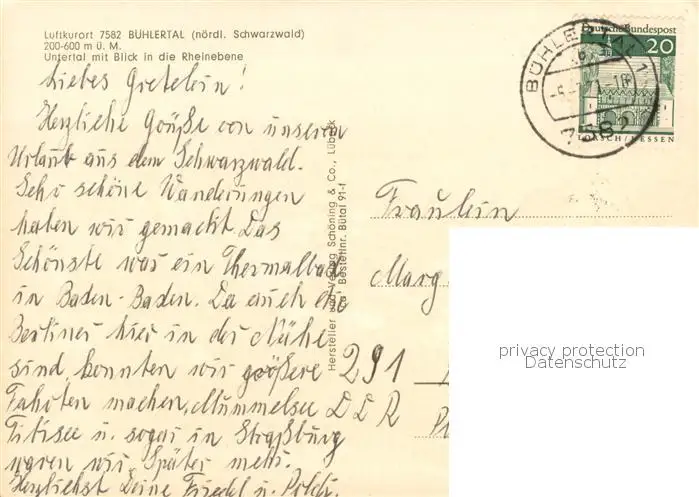 Luftkurort 7582 BÜHLERTAL (nördl. Schwarzwald)
200-600 m ü. M.
Untertal mit Blick in die Rheinebene
Liebes Gretelein!
Herzliche Grüße von unseren
Urlaub aus dem Schwarzwald.
Sehr schöne Wanderungen
haben wir gemacht. Das
Schönste war ein Thermalbad
in Baden-Baden. Da auch die
Berliner hier in der Nähe
sind, konnten wir größere
Fahrten machen, Mummelsee
Titisee u. sogar in Straßburg
waren wir. Später mehr.
Herzlichst Deine Friedel u. Poldi.
Hersteller und Verlag Schöning & Co., Lübeck
Bestellnr. Bütal 91-f
Deutsche Bundespost
20
LORSCH/HESSEN
BÜHLERTAL 1
7582
Fräulein
Marg
291
DDR
privacy protection
Datenschutz